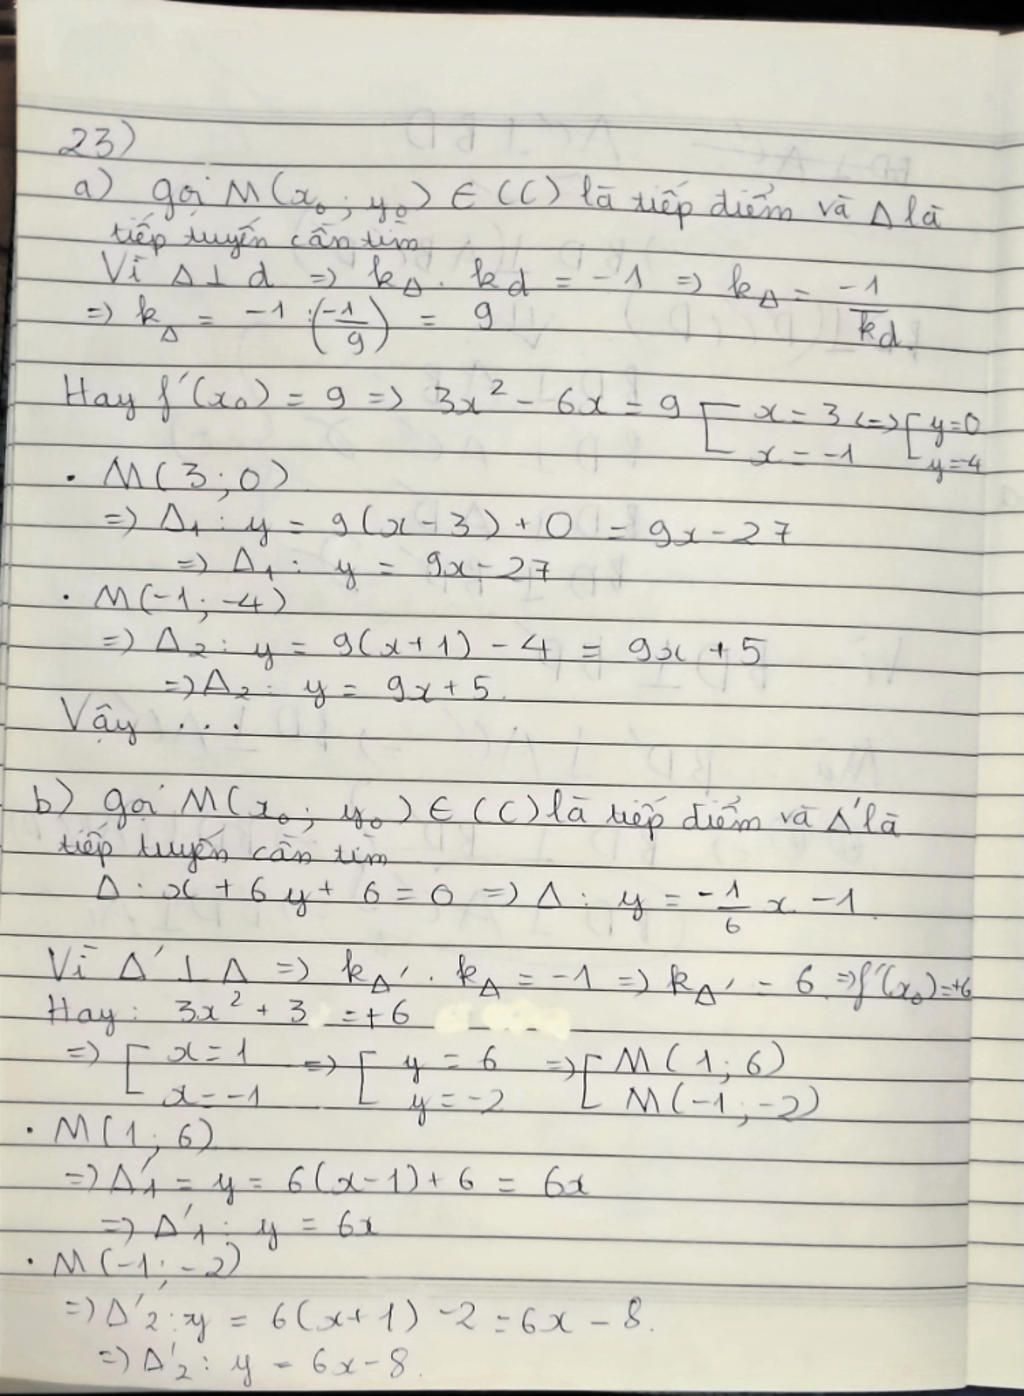 23)
a) gọi M(x₀; y₀) ∈ (C) là tiếp điểm và Δ là
tiếp tuyến cần tìm
Vì Δ ⊥ d => k_Δ . k_d = -1 => k_Δ = -1/k_d.
=> k_Δ = -1 : (-1/9) = 9
Hay f'(x₀) = 9 => 3x² - 6x = 9 [x = 3 <=> [y=0
x = -1 y=-4
• M(3; 0)
=> Δ₁ : y = 9(x-3) + 0 = 9x - 27
=> Δ₁ : y = 9x - 27
• M(-1; -4)
=> Δ₂ : y = 9(x+1) - 4 = 9x + 5
=> Δ₂ : y = 9x + 5.
Vậy ...
b) gọi M(x₀; y₀) ∈ (C) là tiếp điểm và Δ' là
tiếp tuyến cần tìm
Δ : x + 6y + 6 = 0 => Δ : y = -1/6 x - 1
Vì Δ' ⊥ Δ => k_Δ' . k_Δ = -1 => k_Δ' = 6 => f'(x₀)=+6
Hay: 3x² + 3 = +6
=> [x = 1 => [y = 6 => [M(1; 6)
x = -1 y = -2 M(-1; -2)
• M(1; 6)
=> Δ'₁ = y = 6(x-1) + 6 = 6x
=> Δ'₁ : y = 6x
• M(-1; -2)
=> Δ'₂ : y = 6(x+1) - 2 = 6x - 8.
=> Δ'₂ : y = 6x - 8.